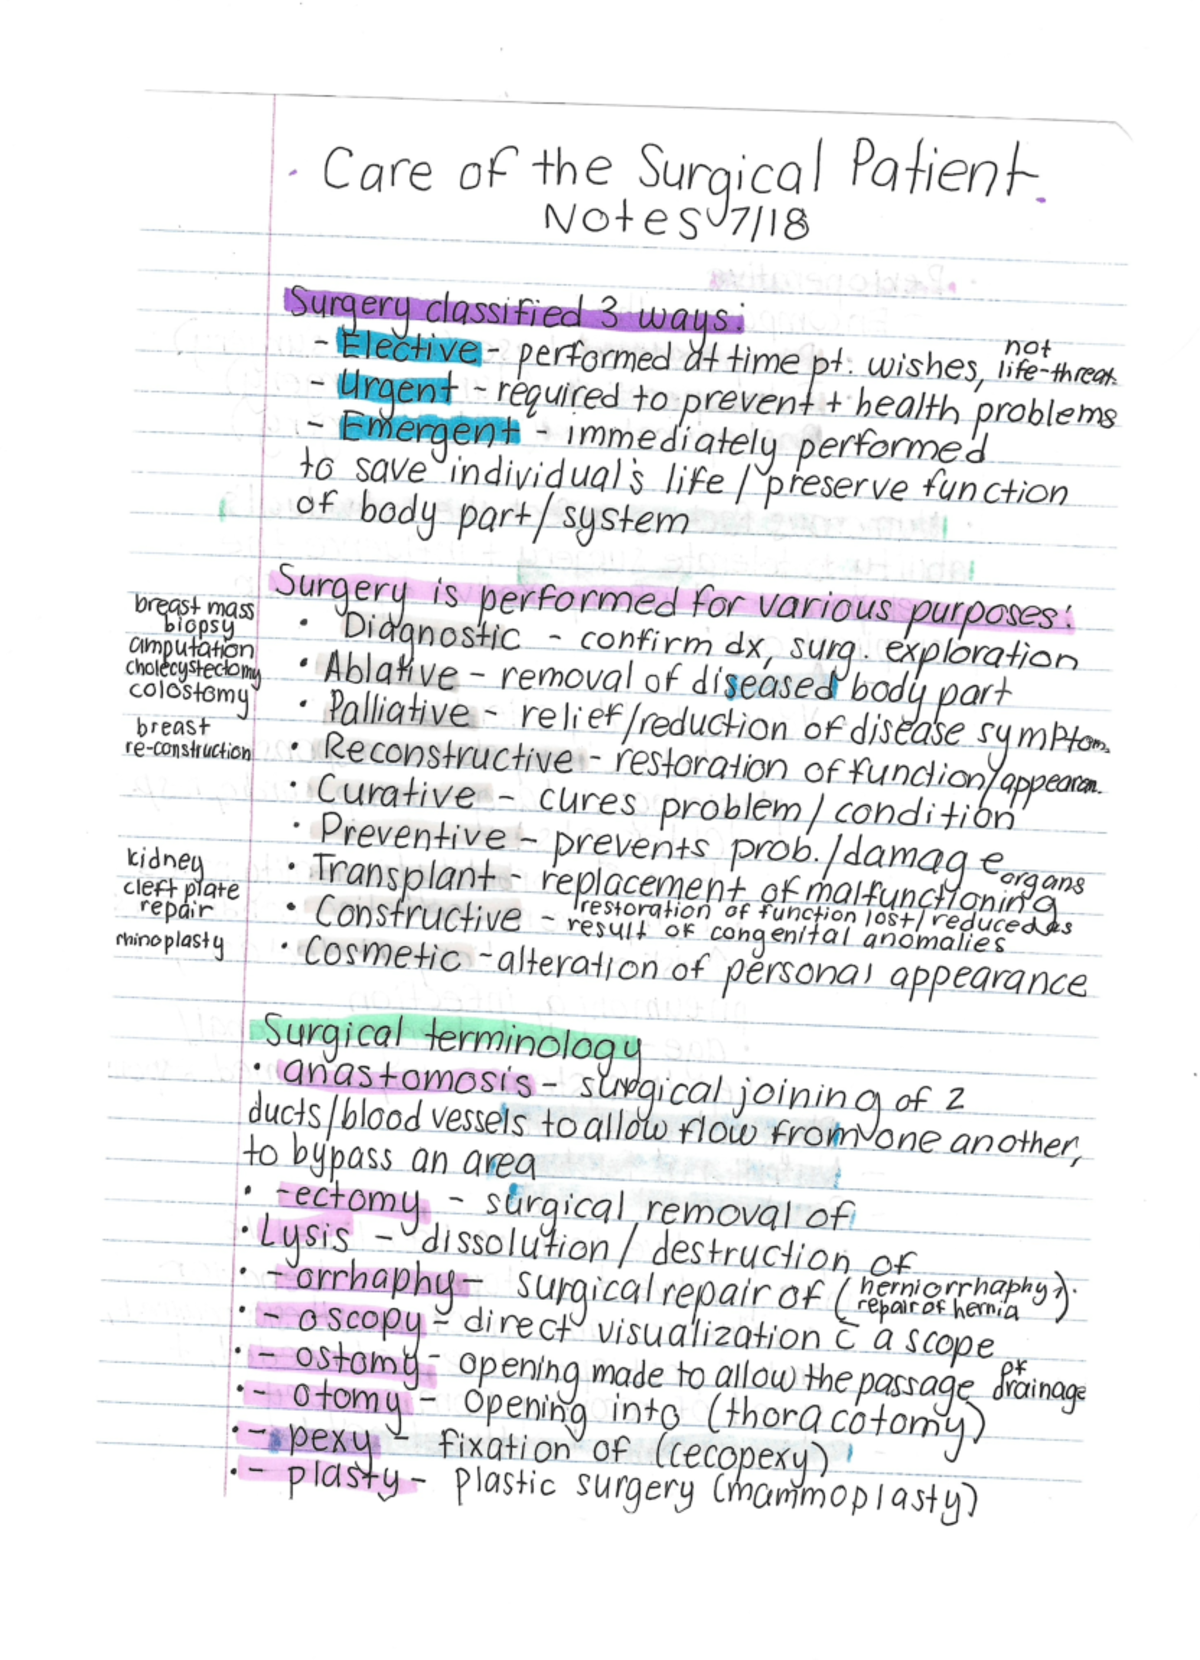 Care of the Surgical Patient
Notes 7/18
Surgery classified 3 ways:
- Elective - performed at time pt. wishes, not life-threat.
- Urgent - required to prevent + health problems
- Emergent - immediately performed
to save individual's life / preserve function
of body part/system
Surgery is performed for various purposes:
breast mass biopsy • Diagnostic - confirm dx, surg. exploration
amputation cholecystectomy • Ablative - removal of diseased body part
colostomy • Palliative - relief/reduction of disease symptom.
breast re-construction • Reconstructive - restoration of function/appearan.
• Curative - cures problem / condition
• Preventive - prevents prob./damage
kidney • Transplant - replacement of malfunctioning organs
cleft plate repair • Constructive - restoration of function lost/reduced as
result of congenital anomalies
rhinoplasty • Cosmetic - alteration of personal appearance
Surgical terminology
• anastomosis - surgical joining of 2
ducts/blood vessels to allow flow from one another,
to bypass an area
• -ectomy - surgical removal of
• Lysis - dissolution / destruction of
• - orrhaphy - surgical repair of (herniorrhaphy →
repair of hernia).
• - oscopy - direct visualization c̄ a scope
• - ostomy - opening made to allow the passage of drainage
• - otomy - opening into (thoracotomy)
• - pexy - fixation of (cecopexy)
• - plasty - plastic surgery (mammoplasty)